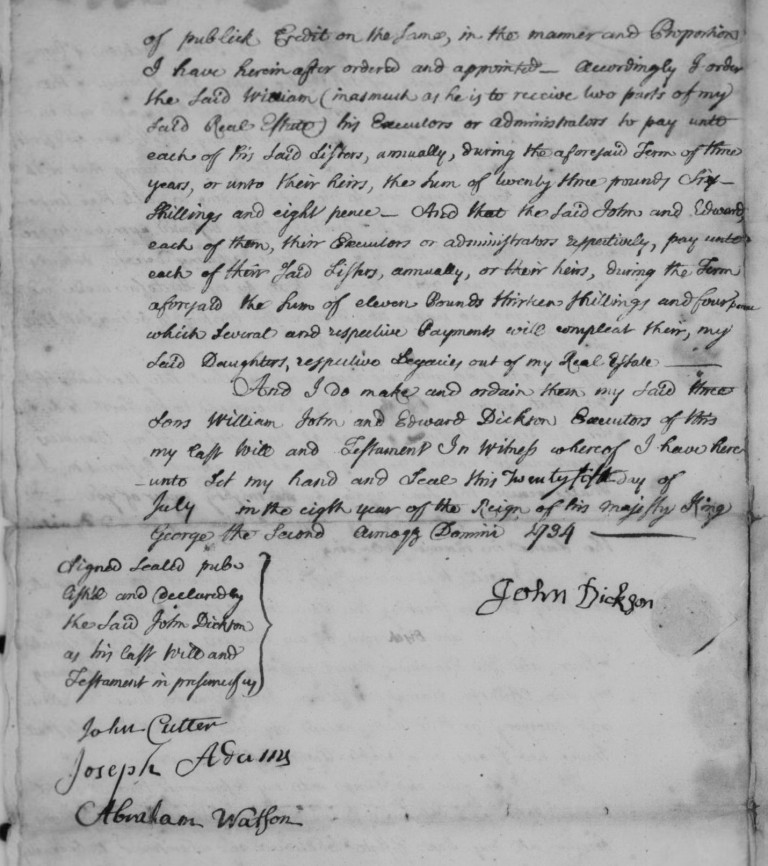 of publick Credit on the same, in the manner and Proportion
I have herein after ordered and appointed — Accordingly I order
the said William (inasmuch as he is to receive two parts of my
said Real Estate) his Executors or administrators to pay unto
each of his said Sisters, annually, during the aforesaid Term of three
years, or unto their heirs, the sum of twenty three pounds Six
shillings and eight pence — And that the said John and Edward,
each of them, their Executors or administrators respectively, pay unto
each of their said Sisters, annually, or their heirs, during the Term
aforesaid the sum of eleven Pounds thirteen shillings and four pence
which several and respective Payments will compleat their, my
said Daughters, respective Legacies out of my Real Estate ——
And I do make and ordain them my said three
sons William John and Edward Dickson Executors of this
my last Will and Testament In Witness whereof I have here
unto Set my hand and Seal this Twenty day of
July in the eigth year of the Reign of his majesty King
George the Second Annoqz Domini 1734 ——
Signed sealed pub
lish'd and declared by
the said John Dickson
as his last Will and
Testament in presence of us
John Dickson
John Cutter
Joseph Adams
Abraham Watson